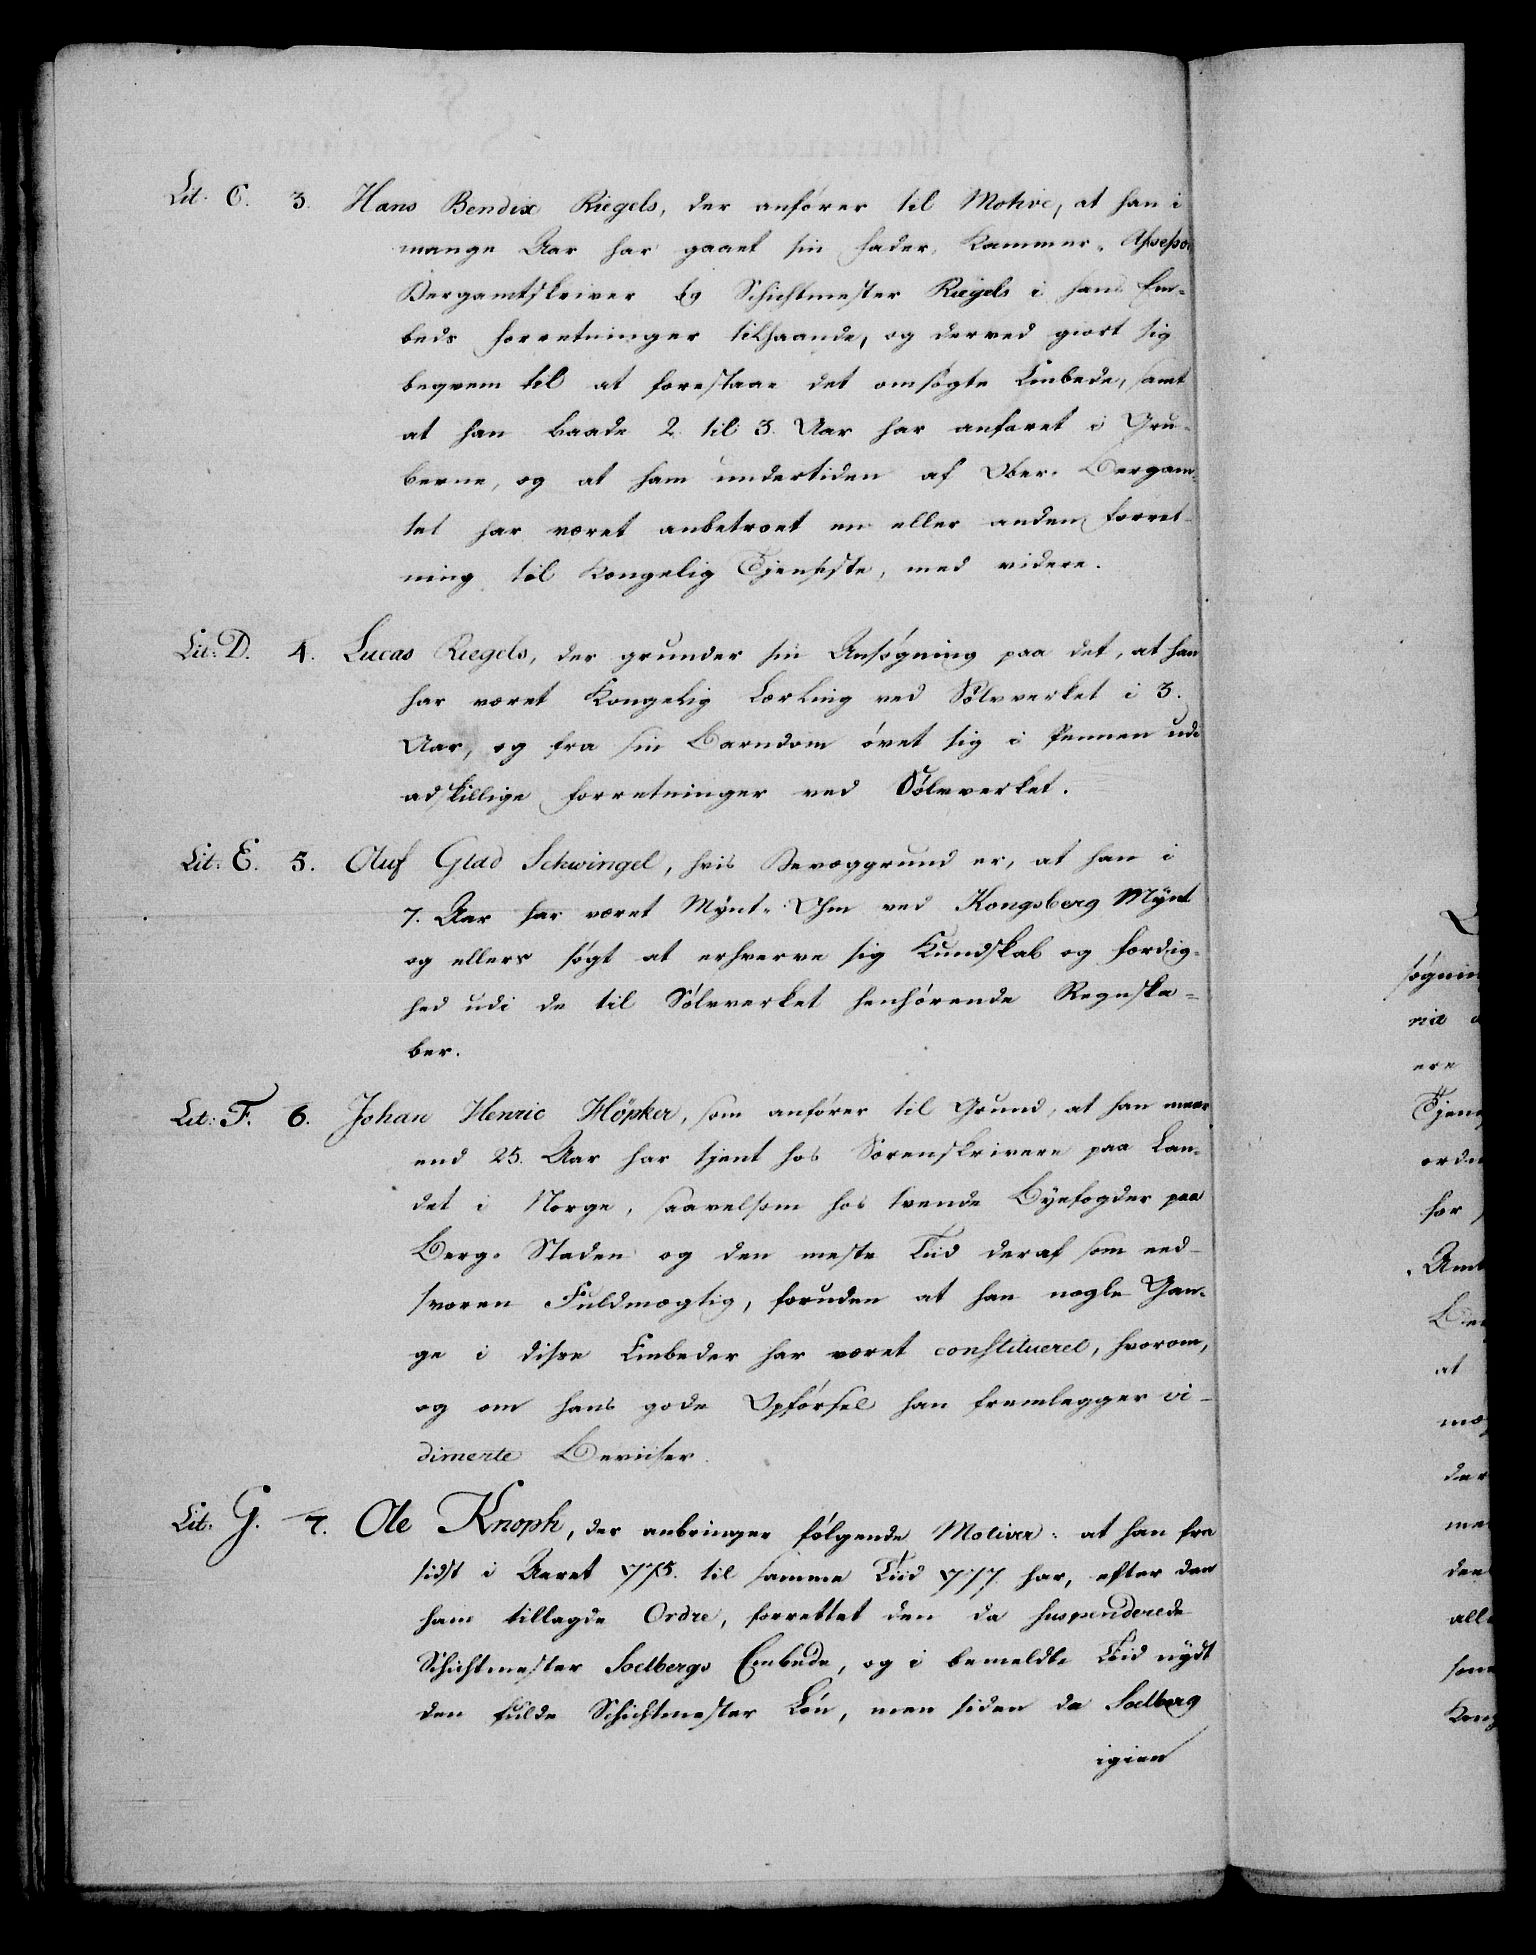 Lit. C. 3. Hans Bendix Riegels, der anfører til Motive, at han i
mange Aar har gaaet sin Fader, Kammer-Assessor
Bergamtskriver og Schichtmester Riegels i hans Em-
beds Forretninger tilhaande, og derved giort sig
beqvem til at forestaae det omsøgte Embede, samt
at han baade 2 til 3. Aar har anfaret i Gru-
berne, og at ham undertiden af Ober-Bergam-
tet har været anbetroet en eller anden Forret-
ning til Kongelig Tjeneste, med videre.
Lit: D. 4. Lucas Riegels, der grunder sin Ansøgning paa det, at han
har været Kongelig Lærling ved Sølvverket i 3.
Aar, og fra sin Barndom øvet sig i Pennen udi
adskillige Forretninger ved Sølvverket.
Lit: E. 5. Oluf Glad Schwingel, hvis Bevæggrund er, at han i
7. Aar har været Mynt-Ohm ved Kongsberg Mynt
og ellers søgt at erhverve sig Kundskab og Færdig-
hed udi de til Sølvverket henhørende Regnska-
ber.
Lit: F. 6. Johan Henric Höpker, som anfører til Grund, at han meer
end 25. Aar har tjent hos Sorenskrivere paa Lan-
det i Norge, saavelsom hos tvende Byefogder paa
Berg-Staden og den meste Tiid deraf som eed-
svoren Fuldmægtig, foruden at han nogle Gan-
ge i disse Embeder har været constitueret, hvorom,
og om hans gode Opførsel han fremlegger vi-
dimerte Beviiser.
Lit. G. 7. Ole Knoph, der anbringer følgende Motiver: at han fra
sidst i Aaret 775. til samme Tiid 777. har, efter den
ham tillagde Ordre, forrettet den da suspenderede
Schichtmester Soelbergs Embede, og i bemeldte Tiid nydt
den fulde Schichtmester Løn, men siden da Soelberg
igien